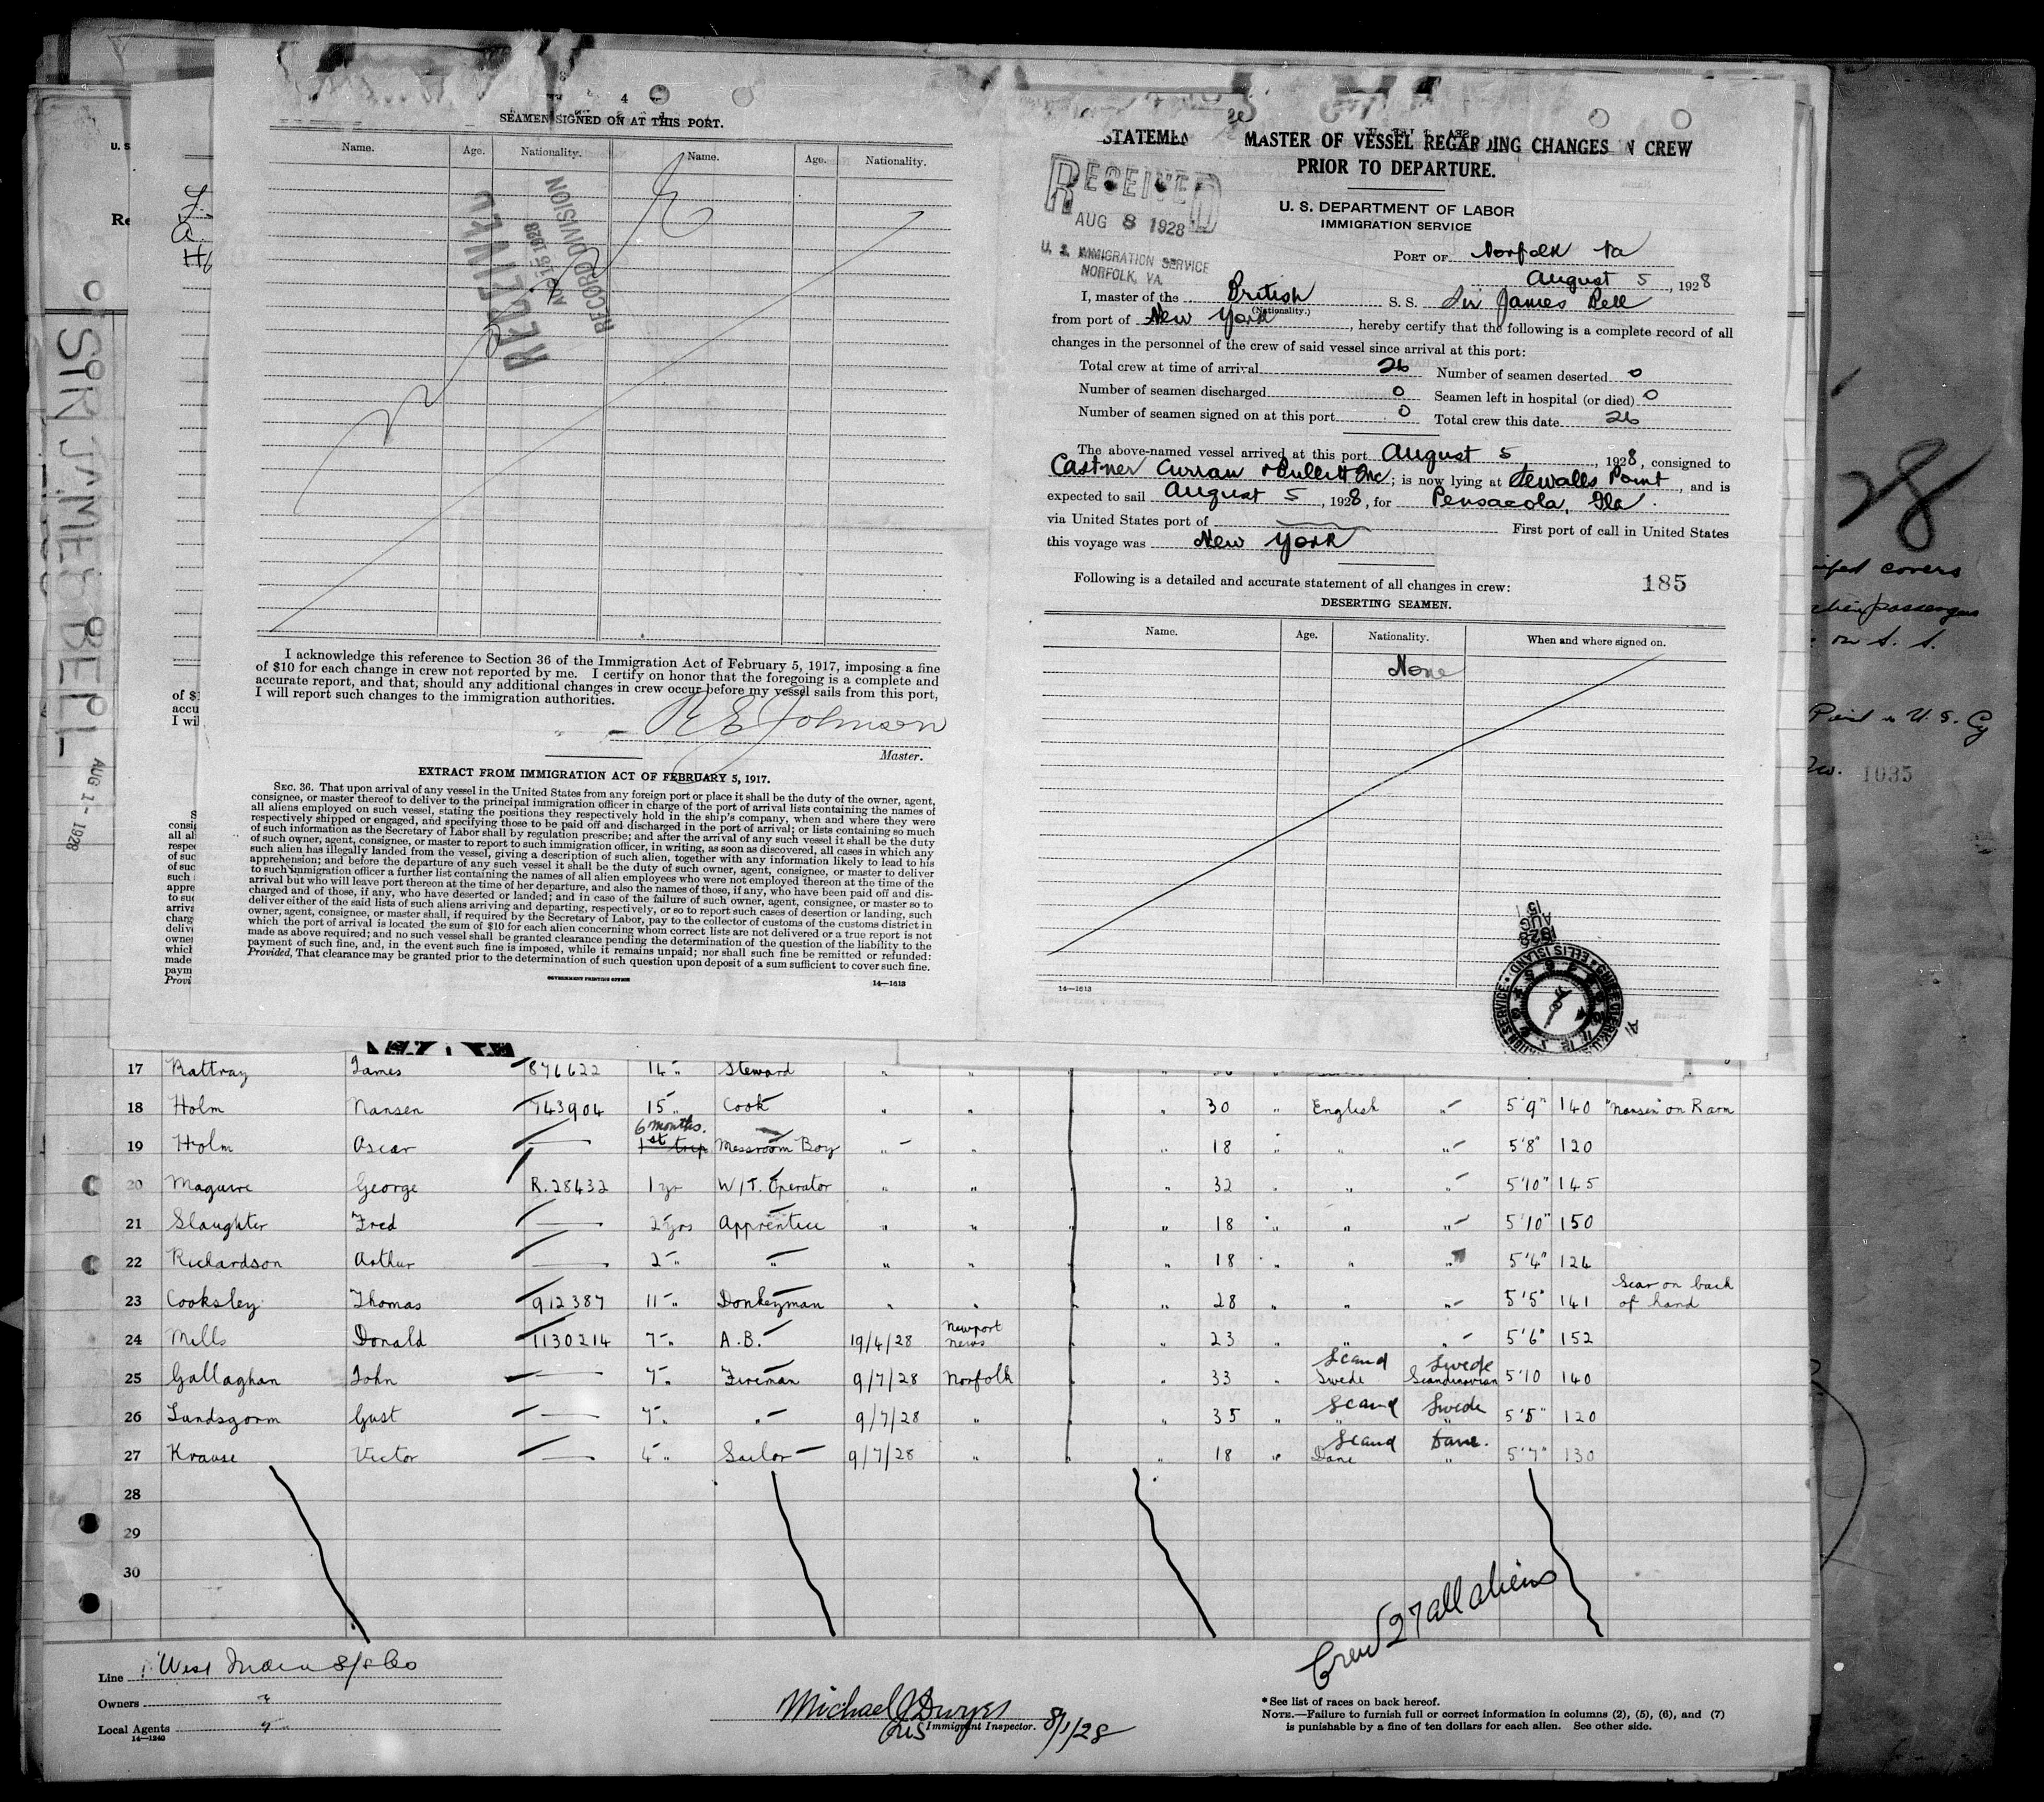 SEAMEN SIGNED ON AT THIS PORT.
Name. Age. Nationality. Name. Age. Nationality.
RECEIVED
AUG 15 1928
RECORD DIVISION
I acknowledge this reference to Section 36 of the Immigration Act of February 5, 1917, imposing a fine
of $10 for each change in crew not reported by me. I certify on honor that the foregoing is a complete and
accurate report, and that, should any additional changes in crew occur before my vessel sails from this port,
I will report such changes to the immigration authorities.
R E Johnson
Master.
EXTRACT FROM IMMIGRATION ACT OF FEBRUARY 5, 1917.
SEC. 36. That upon arrival of any vessel in the United States from any foreign port or place it shall be the duty of the owner, agent,
consignee, or master thereof to deliver to the principal immigration officer in charge of the port of arrival lists containing the names of
all aliens employed on such vessel, stating the positions they respectively hold in the ship's company, when and where they were
respectively shipped or engaged, and specifying those to be paid off and discharged in the port of arrival; or lists containing so much
of such information as the Secretary of Labor shall by regulation prescribe; and after the arrival of any such vessel it shall be the duty
of such owner, agent, consignee, or master to report to such immigration officer, in writing, as soon as discovered, all cases in which any
such alien has illegally landed from the vessel, giving a description of such alien, together with any information likely to lead to his
apprehension; and before the departure of any such vessel it shall be the duty of such owner, agent, consignee, or master to deliver
to such immigration officer a further list containing the names of all alien employees who were not employed thereon at the time of the
arrival but who will leave port thereon at the time of her departure, and also the names of those, if any, who have been paid off and dis-
charged and of those, if any, who have deserted or landed; and in case of the failure of such owner, agent, consignee, or master so to
deliver either of the said lists of such aliens arriving and departing, respectively, or so to report such cases of desertion or landing, such
owner, agent, consignee, or master shall, if required by the Secretary of Labor, pay to the collector of customs of the customs district in
which the port of arrival is located the sum of $10 for each alien concerning whom correct lists are not delivered or a true report is not
made as above required; and no such vessel shall be granted clearance pending the determination of the question of the liability to the
payment of such fine, and, in the event such fine is imposed, while it remains unpaid; nor shall such fine be remitted or refunded:
Provided, That clearance may be granted prior to the determination of such question upon deposit of a sum sufficient to cover such fine.
GOVERNMENT PRINTING OFFICE
14—1613
STATEMEN MASTER OF VESSEL REGARDING CHANGES IN CREW
PRIOR TO DEPARTURE.
RECEIVED
AUG 8 1928
U. S. IMMIGRATION SERVICE
NORFOLK, VA.
U. S. DEPARTMENT OF LABOR
IMMIGRATION SERVICE
PORT OF Norfolk Va
August 5, 1928
I, master of the British S. S. Sir James Bell
(Nationality.)
from port of New York, hereby certify that the following is a complete record of all
changes in the personnel of the crew of said vessel since arrival at this port:
Total crew at time of arrival 26 Number of seamen deserted 0
Number of seamen discharged 0 Seamen left in hospital (or died) 0
Number of seamen signed on at this port 0 Total crew this date 26
The above-named vessel arrived at this port August 5, 1928, consigned to
Castner Curran & Bullitt Inc; is now lying at Sewalls Point, and is
expected to sail August 5, 1928, for Pensacola, Fla.
via United States port of First port of call in United States
this voyage was New York
Following is a detailed and accurate statement of all changes in crew: 185
DESERTING SEAMEN.
Name. Age. Nationality. When and where signed on.
None
14—1613
1928
AUG
15
SIR JAMES BELL
AUG 1- 1928
28
on S. S.
1035
17 Rattray James 876622 14 " Steward " "
18 Holm Nansen 743904 15 " Cook " " " " 30 " English " 5'9" 140 "Nansen" on R arm
6 months.
19 Holm Oscar — 1st trip Messroom Boy " " " " 18 " " " 5'8" 120
20 Maguire George R.28432 1 yr W/T. Operator " " " " 32 " " " 5'10" 145
21 Slaughter Fred — 2 yrs Apprentice " " " " 18 " " " 5'10" 150
22 Richardson Arthur — 2 " " " " " " 18 " " " 5'4" 124
23 Cooksley Thomas 912387 11 " Donkeyman " " " " 28 " " " 5'5" 141 Scar on back of hand
24 Mills Donald 1130214 7 " A.B. 19/4/28 Newport News " " 23 " " " 5'6" 152
Scand Swede
25 Gallaghan John — 7 " Fireman 9/7/28 Norfolk " " 33 " Swede Scandinavian 5'10 140
Scand Swede
26 Lundsgorm Gust — 7 " " 9/7/28 " " " 35 " " " 5'5" 120
Scand Dane.
27 Krause Victor — 4 " Sailor 9/7/28 " " " 18 " Dane " 5'7" 130
28
29
30
Crew 27 all aliens
Line West India S/S Co
Owners "
Local Agents "
14—1240
Michael J Dwyer
Immigrant Inspector. 8/1/28
*See list of races on back hereof.
NOTE.—Failure to furnish full or correct information in columns (2), (5), (6), and (7)
is punishable by a fine of ten dollars for each alien. See other side.